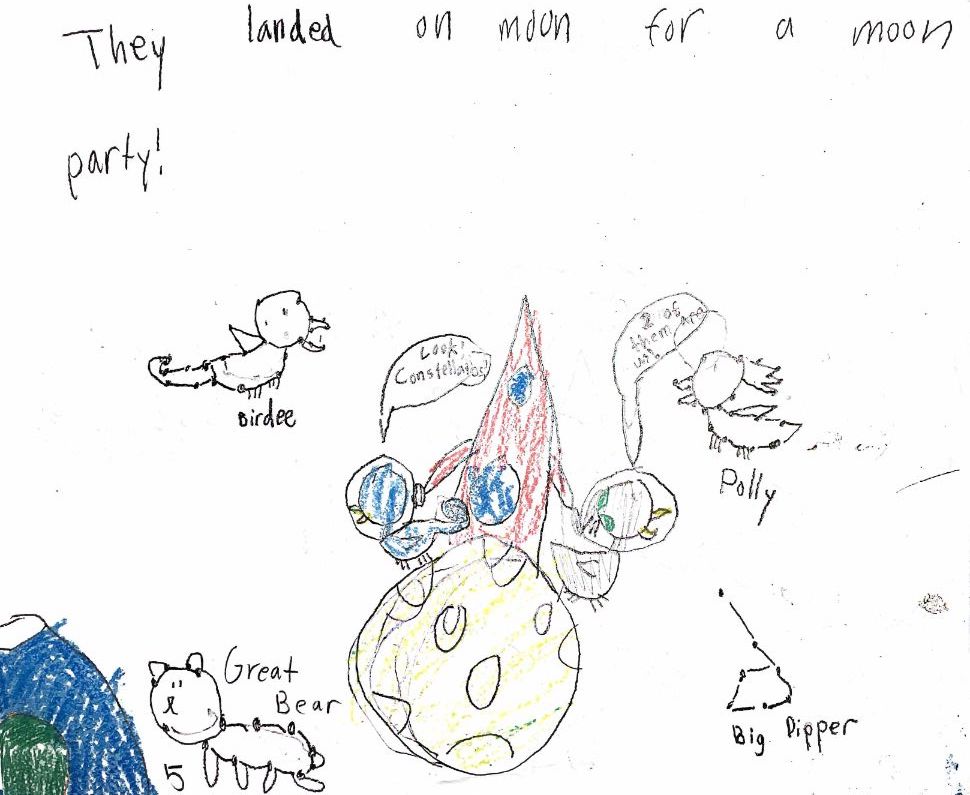 They landed on moon for a moon
party!
Look!
Constellatbs!
2 of
them are
us!
Birdee
Polly
Great
Bear
Big Dipper
5